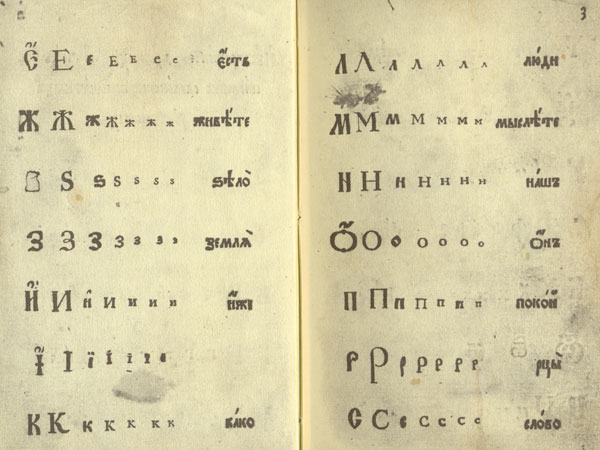 Є҆́ Е е е е е е є҆́сть
Ж Ж ж ж ж ж ж живѣ́те
Ѕ Ѕ ѕ ѕ ѕ ѕ ѕ ѕѣло̀
З З з з з з з землѧ̀
И҆́ И и҆ и и и и и҆́же
І҆́ І ї і і і і
К К к к к к к ка́ко
3
Л Л л л л л л лю́ди
М М м м м м м мыслѣ́те
Н Н н н н н н на́шъ
Ѻ҆́ О о о о о о ѻ҆́нъ
П П п п п п п поко́й
Р Р р р р р р рцы̀
С С с с с с с сло́во